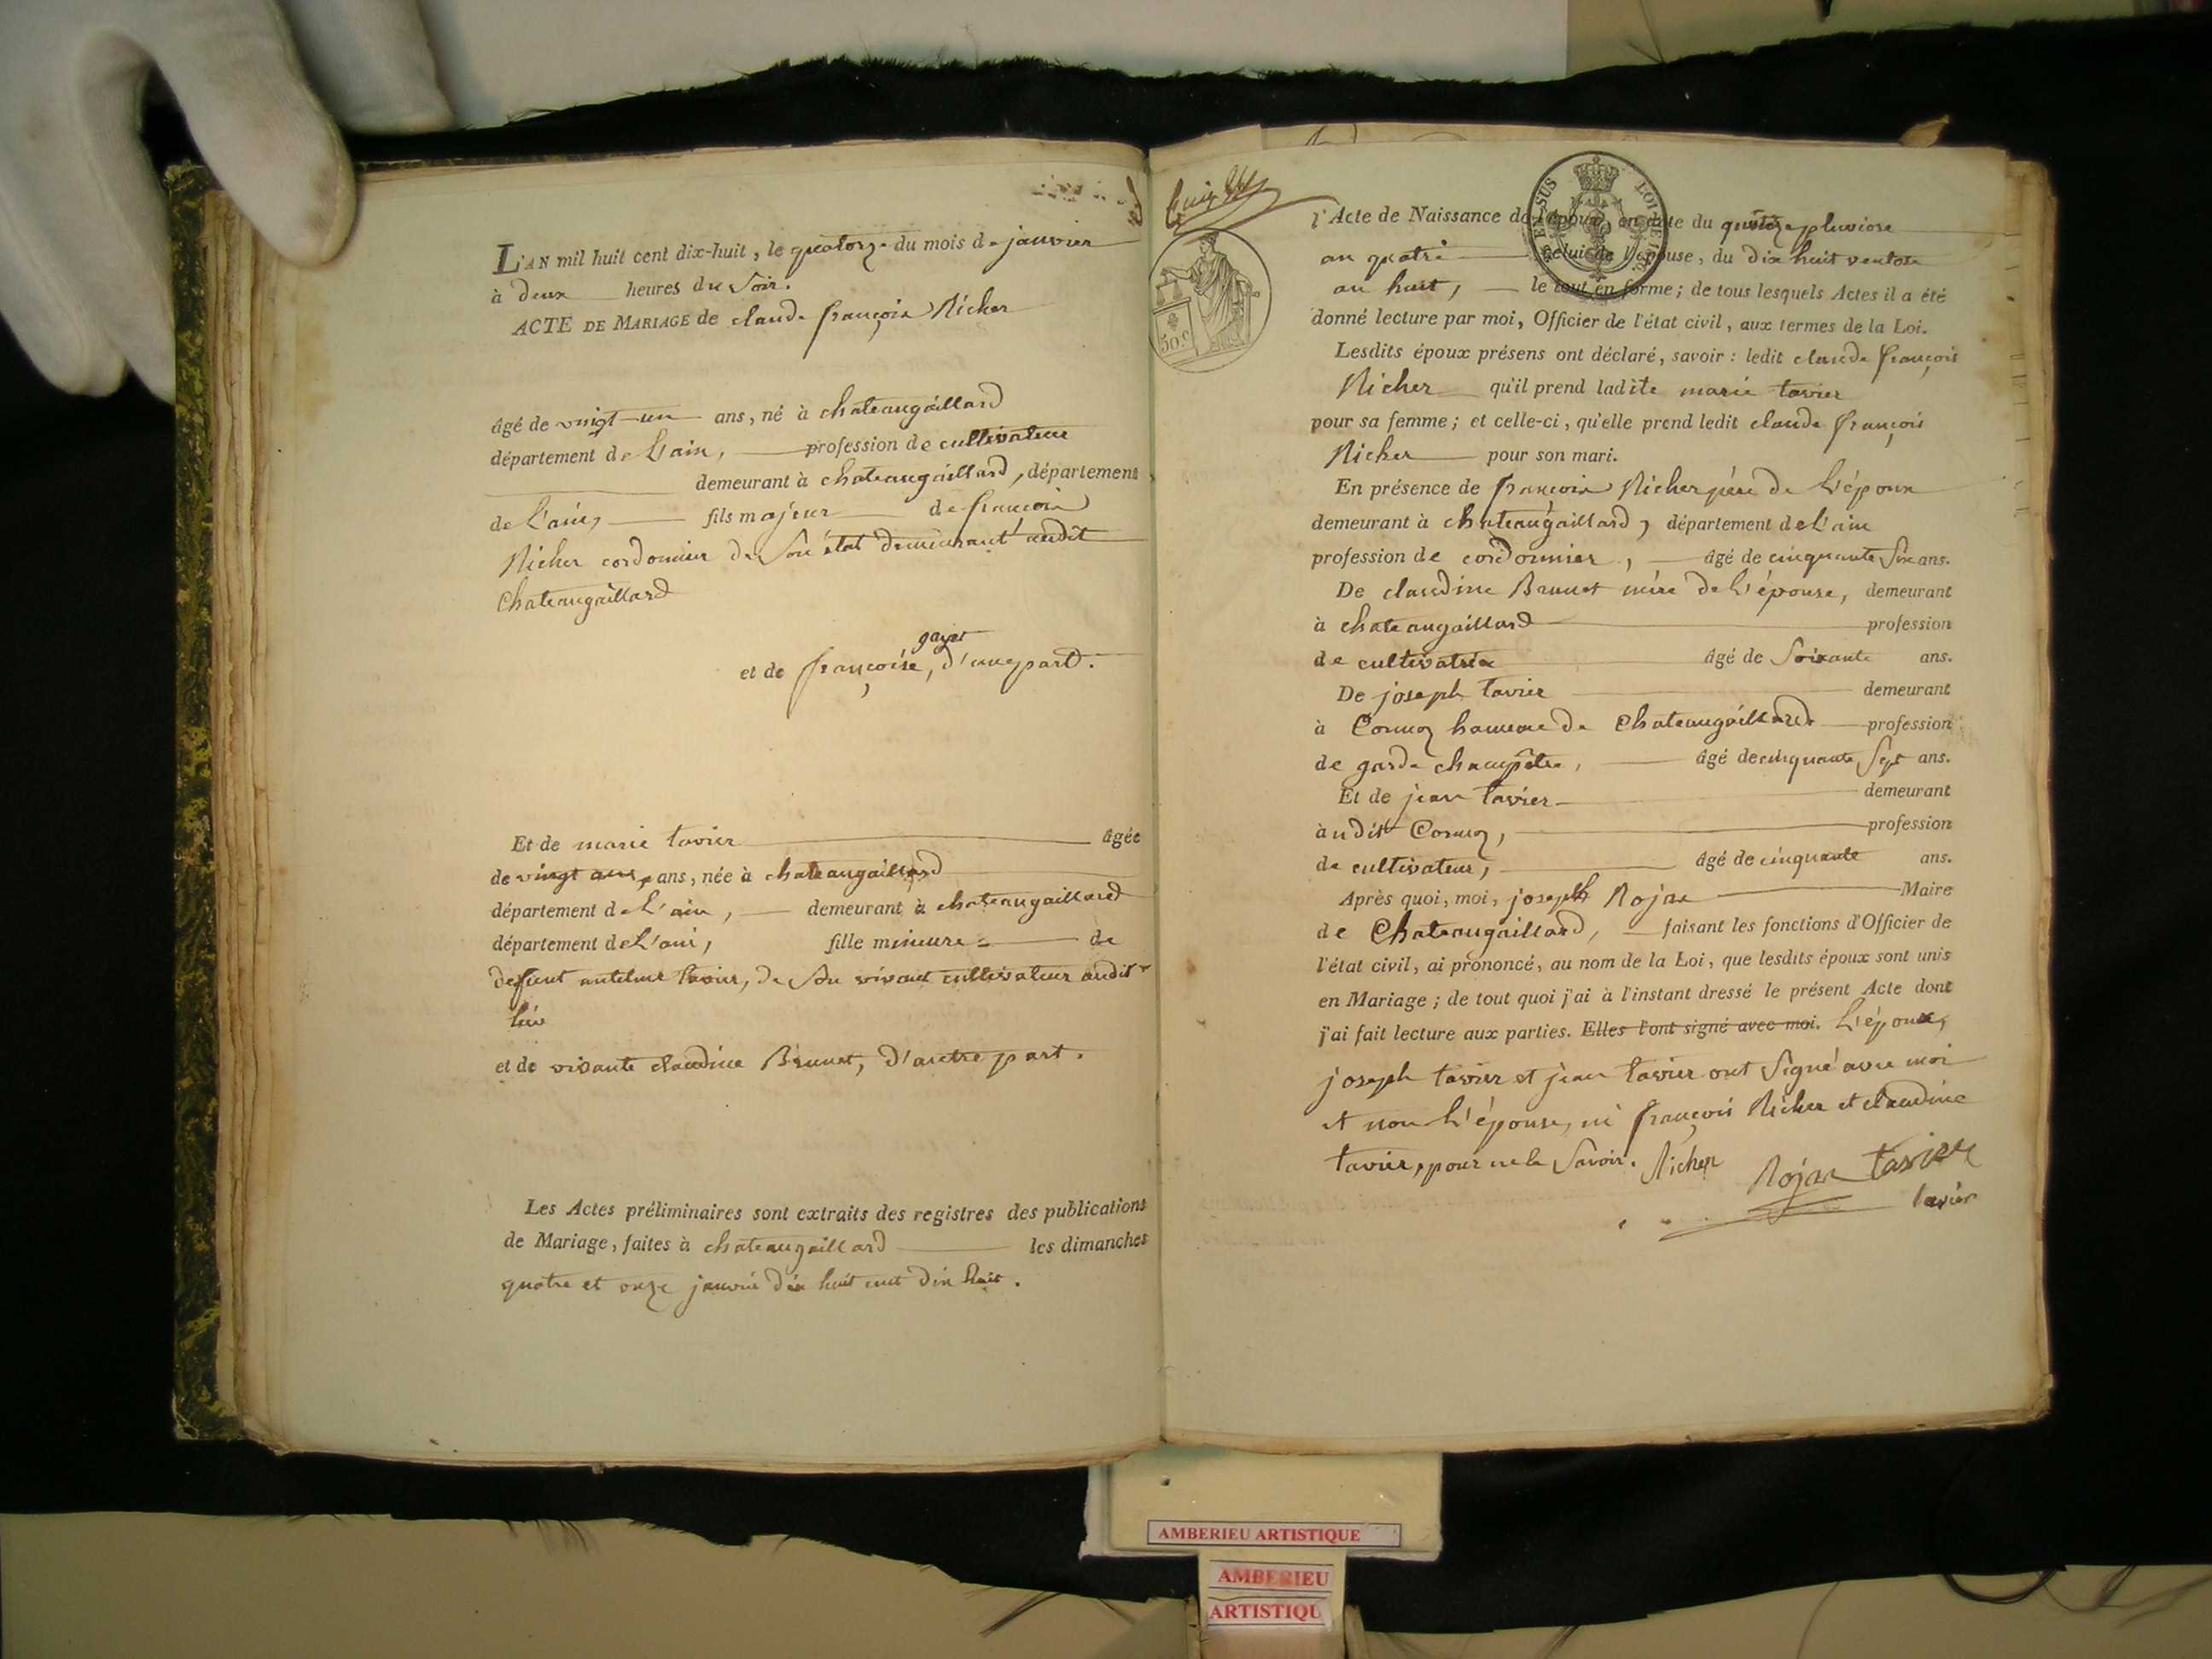 L'AN mil huit cent dix-huit, le quatorze du mois de janvier
à deux heures du Soir.
ACTE DE MARIAGE de claude françois Nicher
âgé de vingt-un ans, né à chateaugaillard
département de L'ain, profession de cultivateur
demeurant à chateaugaillard, département
de L'ain, fils majeur de françois
Nicher cordonnier de Son état demeurant audit
Chateaugaillard
gayet
et de françoise, d'une part.
Et de marie tavier âgée
de vingt ans, ans, née à chateaugaillard
département de L'ain, demeurant à chateaugaillard
département de L'ain, fille mineure de
defunt antelme tavier, de Son vivant cultivateur audit
lieu
et de vivante claudine Brunet, d'autre part.
Les Actes préliminaires sont extraits des registres des publications
de Mariage, faites à chateaugaillard les dimanches
quatre et onze janvier dix huit cent dix huit.
50 c.
l'Acte de Naissance de l'époux, en date du quinze pluviose
an quatre celui de l'épouse, du dix huit ventose
an huit, le tout en forme; de tous lesquels Actes il a été
donné lecture par moi, Officier de l'état civil, aux termes de la Loi.
Lesdits époux présens ont déclaré, savoir: ledit claude françois
Nicher qu'il prend ladite marie tavier
pour sa femme; et celle-ci, qu'elle prend ledit claude françois
Nicher pour son mari.
En présence de françois Nicher père de L'époux
demeurant à chateaugaillard, département de L'ain
profession de cordonnier, âgé de cinquante Six ans.
De claudine Brunet mère de L'épouse, demeurant
à chateaugaillard profession
de cultivatrice âgé de Soixante ans.
De joseph tavier demeurant
à Cormoz hameau de Chateaugaillard profession
de garde champêtre, âgé de cinquante Sept ans.
Et de jean tavier demeurant
audit Cormoz, profession
de cultivateur, âgé de cinquante ans.
Après quoi, moi, joseph Rojat Maire
de Chateaugaillard, faisant les fonctions d'Officier de
l'état civil, ai prononcé, au nom de la Loi, que lesdits époux sont unis
en Mariage; de tout quoi j'ai à l'instant dressé le présent Acte dont
j'ai fait lecture aux parties. Elles l'ont signé avec moi. L'époux,
joseph tavier et jean tavier ont Signé avec moi
et non L'épouse, ni françois Nicher et claudine
tavier, pour ne le Savoir. Nicher Rojat tavier
tavier
AMBERIEU ARTISTIQUE
AMBERIEU
ARTISTIQU